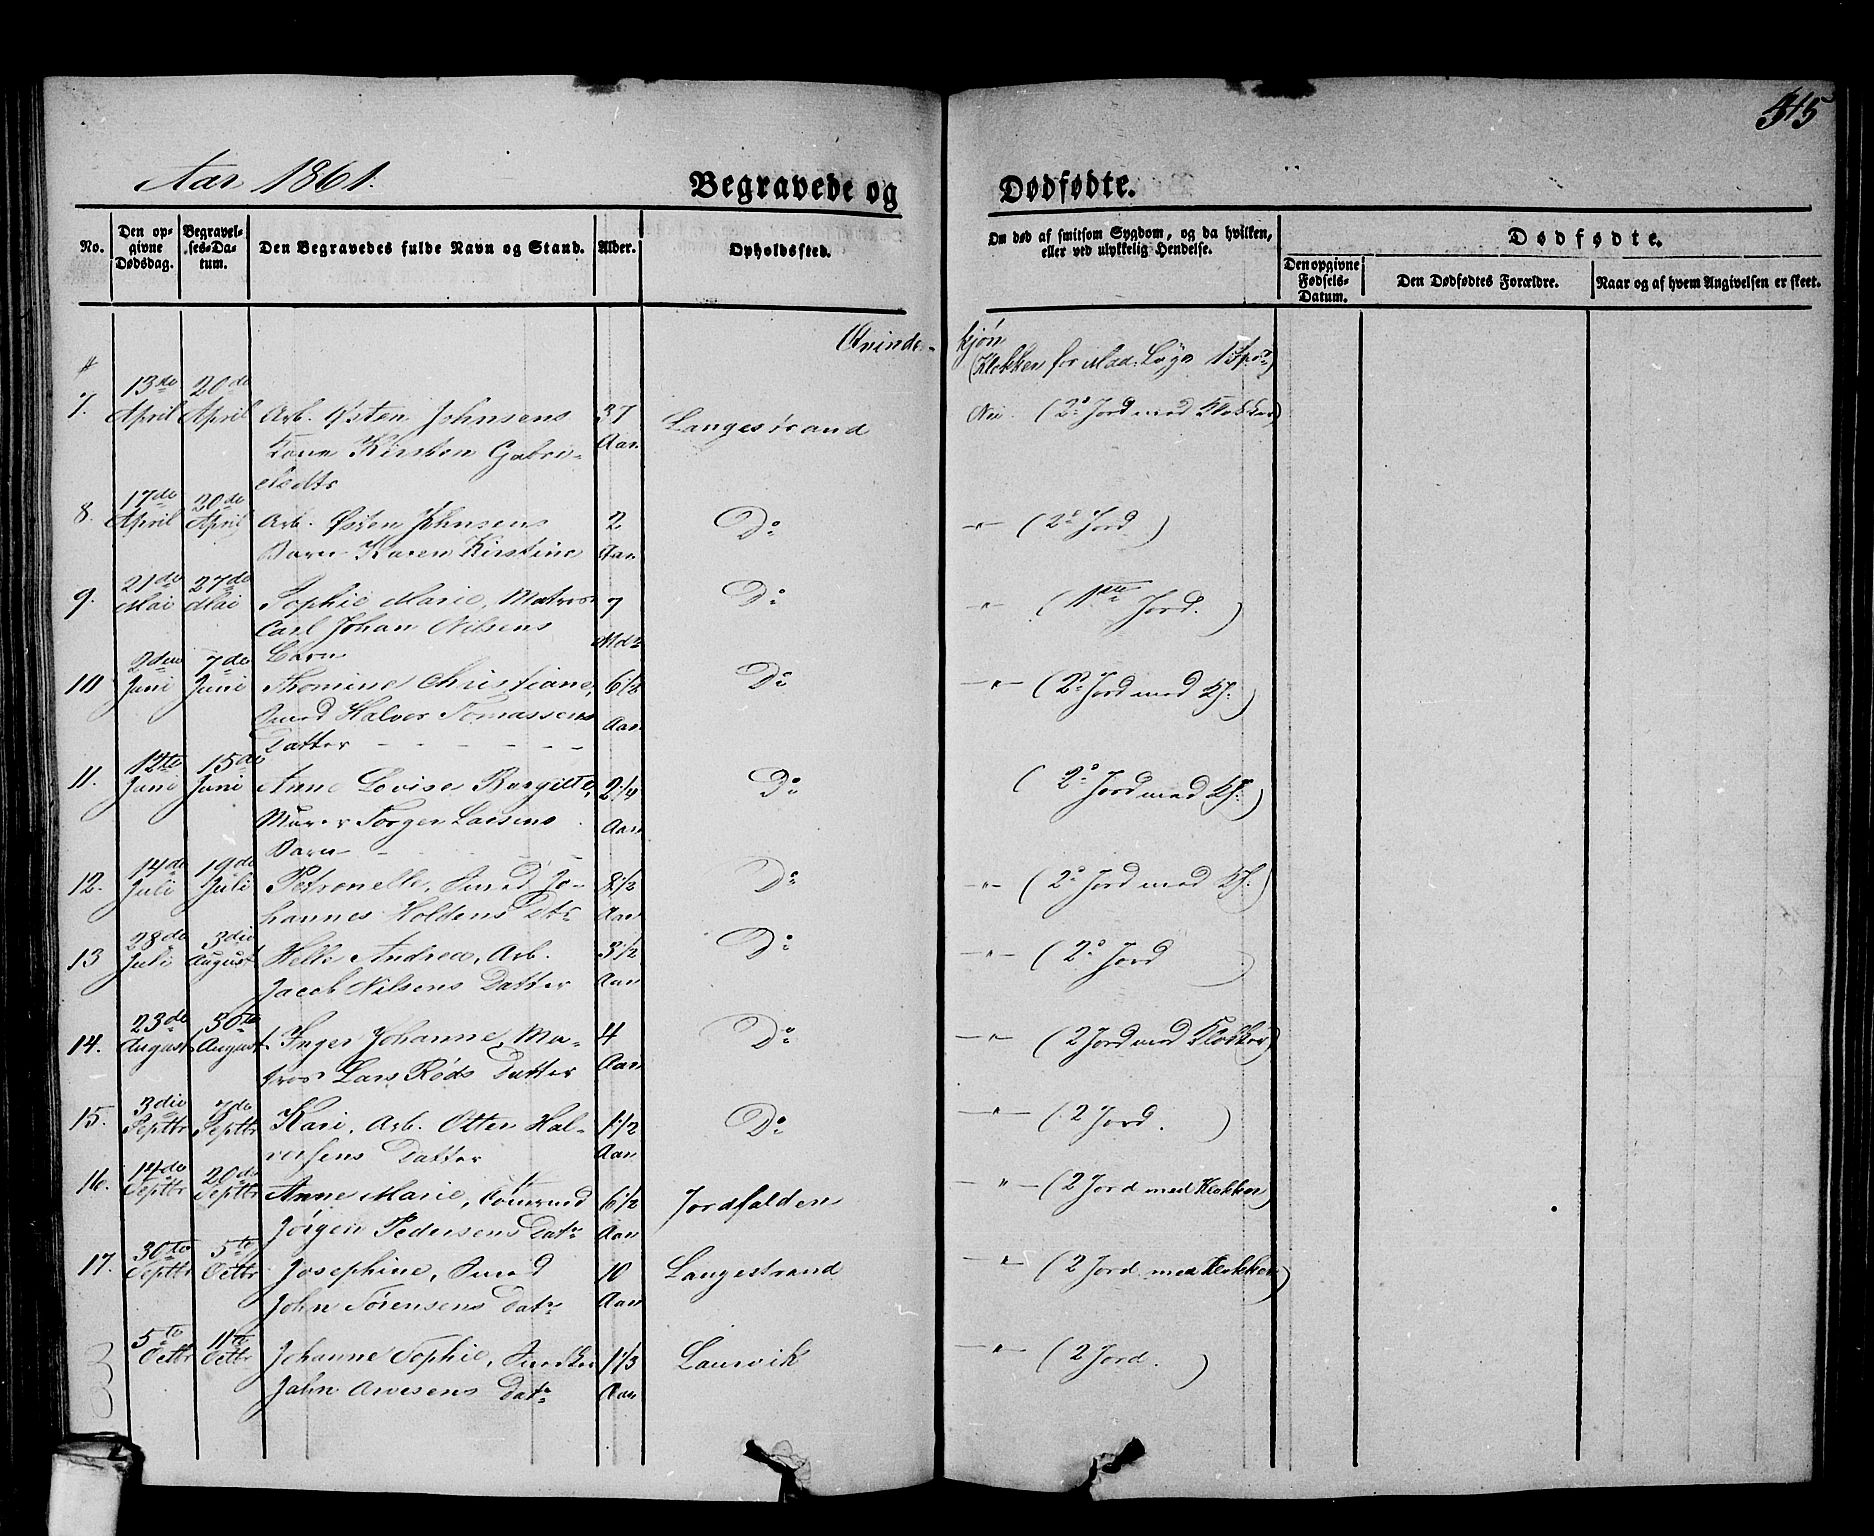 315
Aar 1861.
Begravede og Dødfødte.
No.
Den opgivne Dødsdag.
Begravelses-Datum.
Den Begravedes fulde Navn og Stand.
Alder.
Opholdssted.
Om død af smitsom Sygdom, og da hvilken, eller ved ulykkelig Hendelse.
Dødfødte.
Den opgivne Fødsels-Datum.
Den Dødfødtes Forældre.
Naar og af hvem Angivelsen er skeet.
Qvinde- kjøn
(Klokken for Mad.
7. 13de April 20de April Arb. Østen Johnsens 37 Aar Langestrand Nei. (2 Jord med Klokker)
Kone Kirsten Gabri-
eledtr
8. 17de April 20de April Arb. Østen Johnsens 2 Aar Do —"— (2 Jord)
Barn Karen Kirstine
9. 21de Mai 27de Mai Sophie Marie, Matros 7 Mdr Do " (1ste Jord.)
Carl Johan Nilsens
Barn
10 2den Juni 7de Juni Thomine Christiane, 6 1/2 Aar Do —"— (2 Jord med Kl.)
Smed Halvor Tomassens
Datter
11. 12te Juni 15de Juni Anne Lovise Bergitte, 2 1/4 Aar Do (2 Jord med Kl.)
Murer Torger Larsens
Barn
12. 14de Juli 19de Juli Petronelle, Smed Jo- 2 1/2 Aar Do —"— (2 Jord med Kl.)
hannes Holdens Datr
13 28de Juli 3die August Helle Andrea, Arb. 3 1/2 Aar Do —"— (2 Jord)
Jacob Nilsens Datter
14. 23de August 30te August Inger Johanne, Ma- 4 Aar Do —"— (2 Jord med Klokker)
tros Lars Røds Datter
15. 3die Septbr 7de Septbr Kari, Arb. Otter Hal- 1 1/2 Aar Do —"— (2 Jord.)
vorsens Datter
16. 14de Septbr 20de Septbr Anne Marie, Tømmrmd 6 1/2 Aar Jordfalden —"— (2 Jord med Klokker)
Jörgen Pedersens Datr
17. 30te Septbr 5te Octbr Josephine, Smed 10 Aar Langestrand " (2 Jord med Klokker)
John Sørensens Datr
5te Octbr 11te Octbr Johanne Sophie, 1 1/3 Aar Laurvik —"— (2 Jord.)
John Arvesens Datr